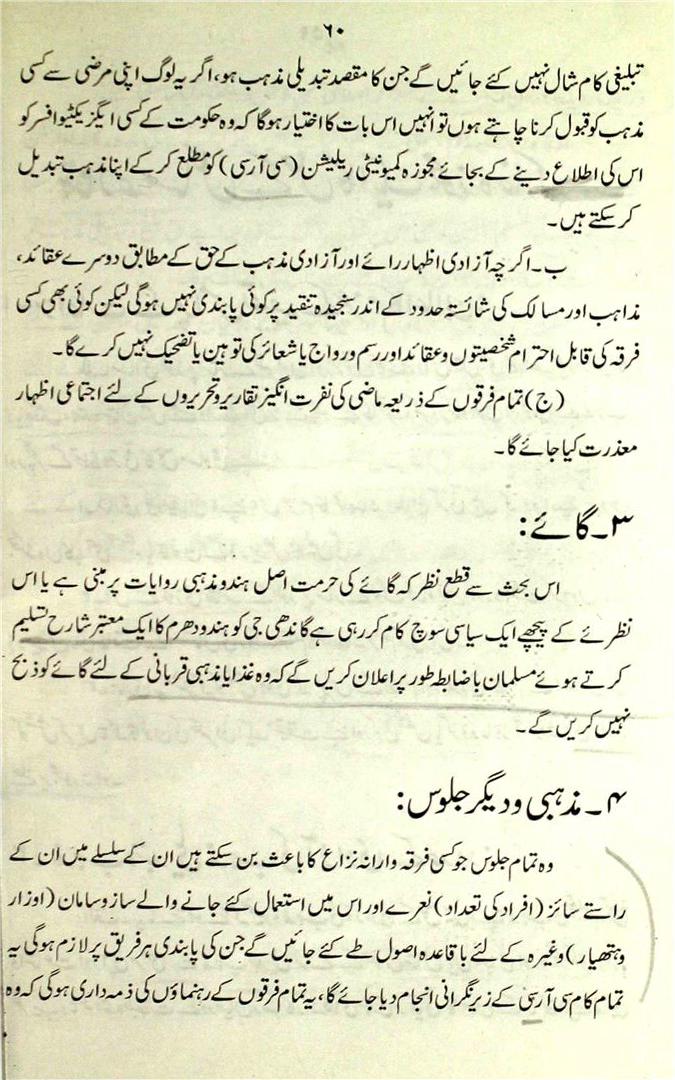 ۶۰
تبلیغی کام شال نہیں کئے جائیں گے جن کا مقصد تبدیلی مذہب ہو، اگر یہ لوگ اپنی مرضی سے کسی
مذہب کو قبول کرنا چاہتے ہوں تو انہیں اس بات کا اختیار ہوگا کہ وہ حکومت کے کسی ایگزیکٹیو افسر کو
اس کی اطلاع دینے کے بجائے مجوزہ کمیونیٹی ریلیشن (سی آر سی) کو مطلع کر کے اپنا مذہب تبدیل
کر سکتے ہیں۔
ب۔ اگر چہ آزادی اظہار رائے اور آزادی مذہب کے حق کے مطابق دوسرے عقائد،
مذاہب اور مسالک کی شائستہ حدود کے اندر سنجیدہ تنقید پر کوئی پابندی نہیں ہوگی لیکن کوئی بھی کسی
فرقہ کی قابل احترام شخصیتوں و عقائد اور رسم و رواج یا شعائر کی توہین یا تضحیک نہیں کرے گا۔
(ج) تمام فرقوں کے ذریعہ ماضی کی نفرت انگیز تقاریر و تحریروں کے لئے اجتماعی اظہار
معذرت کیا جائے گا۔
۳۔ گائے:
اس بحث سے قطع نظر کہ گائے کی حرمت اصل ہندو مذہبی روایات پر مبنی ہے یا اس
نظرئے کے پیچھے ایک سیاسی سوچ کام کر رہی ہے گاندھی جی کو ہندو دھرم کا ایک معتبر شارح تسلیم
کرتے ہوئے مسلمان باضابطہ طور پر اعلان کریں گے کہ وہ غذا یا مذہبی قربانی کے لئے گائے کو ذبح
نہیں کریں گے۔
۴۔ مذہبی و دیگر جلوس:
وہ تمام جلوس جو کسی فرقہ وارانہ نزاع کا باعث بن سکتے ہیں ان کے سلسلے میں ان کے
راستے سائز (افراد کی تعداد) نعرے اور اس میں استعمال کئے جانے والے ساز و سامان (اوزار
و ہتھیار) وغیرہ کے لئے با قاعدہ اصول طے کئے جائیں گے جن کی پابندی ہر فریق پر لازم ہوگی یہ
تمام کام سی آر سی کے زیر نگرانی انجام دیا جائے گا، یہ تمام فرقوں کے رہنماؤں کی ذمہ داری ہوگی کہ وہ